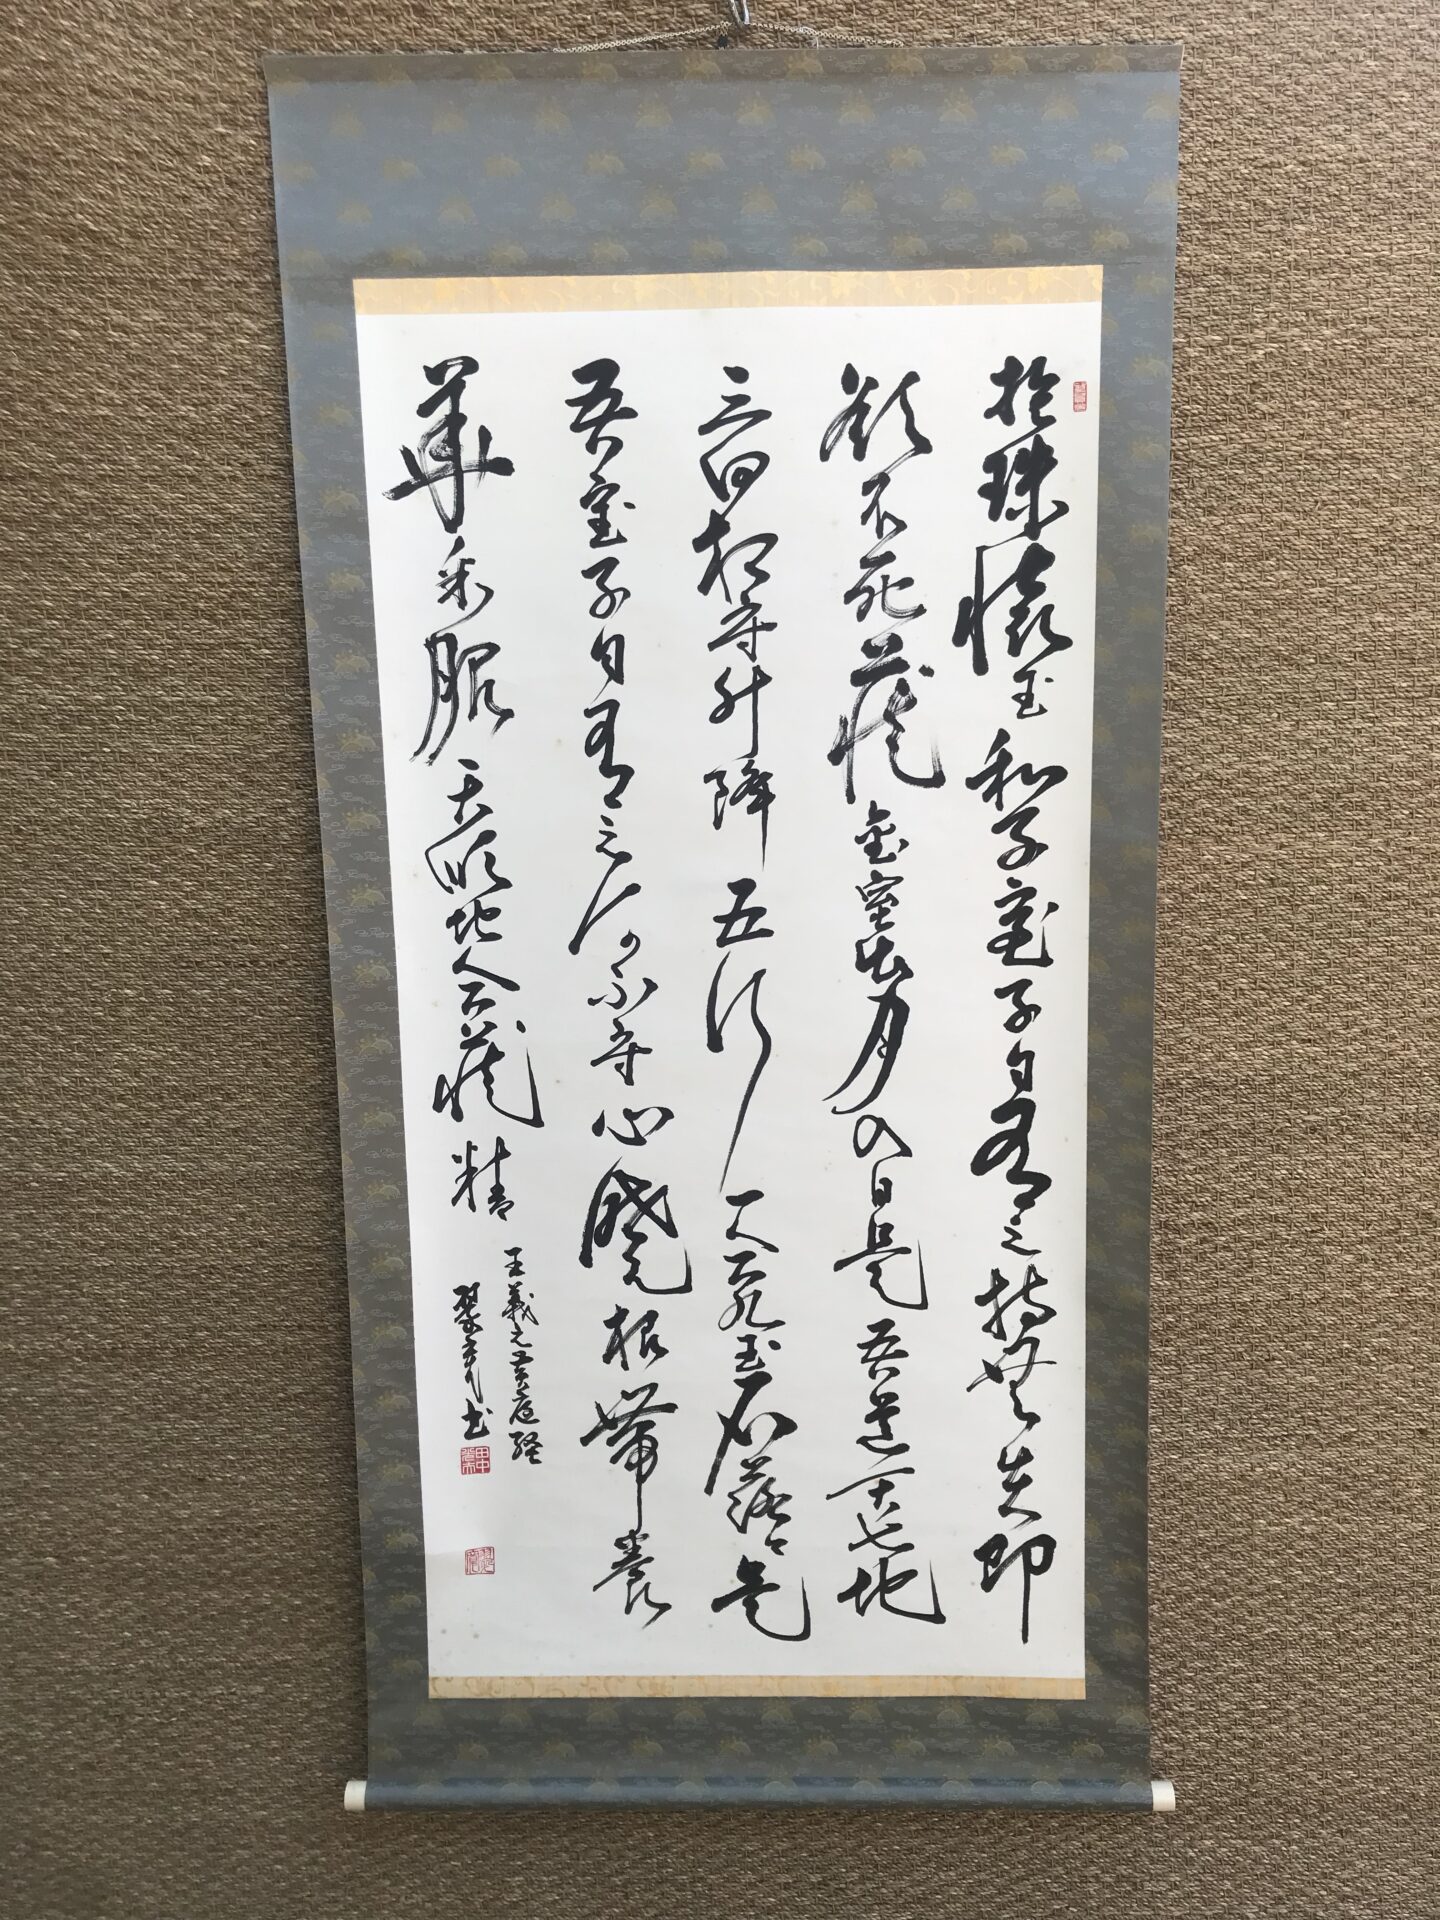 抱珠懷玉和子室子自有之持無失即
欲不死藏金室出月入日是吾道天七地
三回相守升降五行一合九玉石落々是
吾寶子自有之何不守心曉根蒂養
華采服天順地合藏精
王羲之黄庭経
書
田中